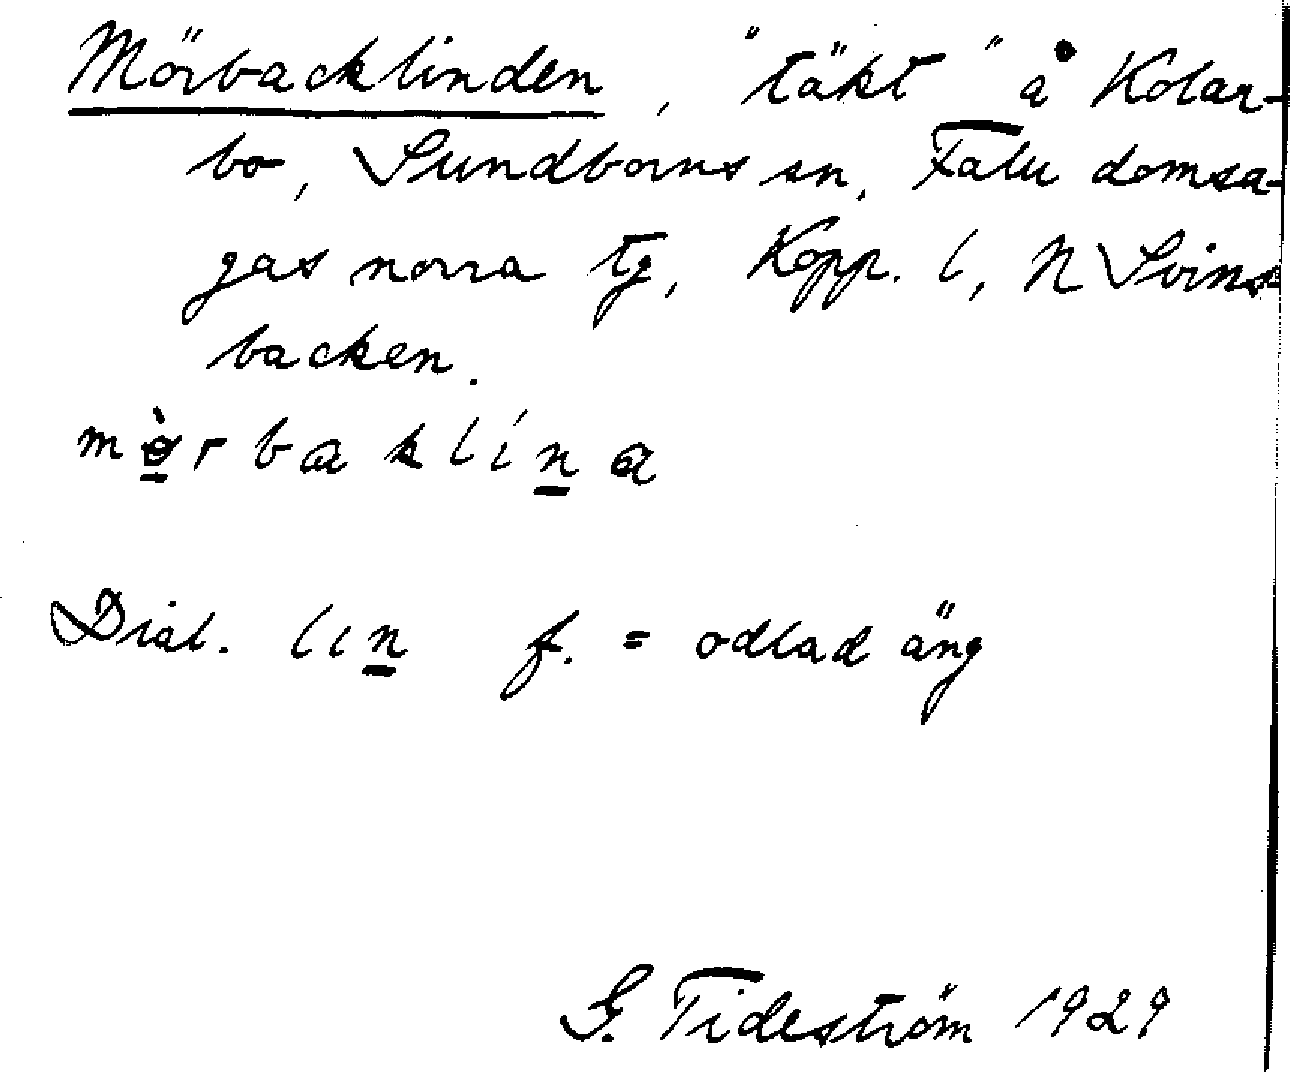 Mörbacklinden, "täkt" å Kolar-
bo, Sundborns sn, Falu domsa-
gas norra tg, Kopp. l, N Svins-
backen.
mø̀rbaklína
Dial. lin f. = odlad äng
G. Tideström 1929